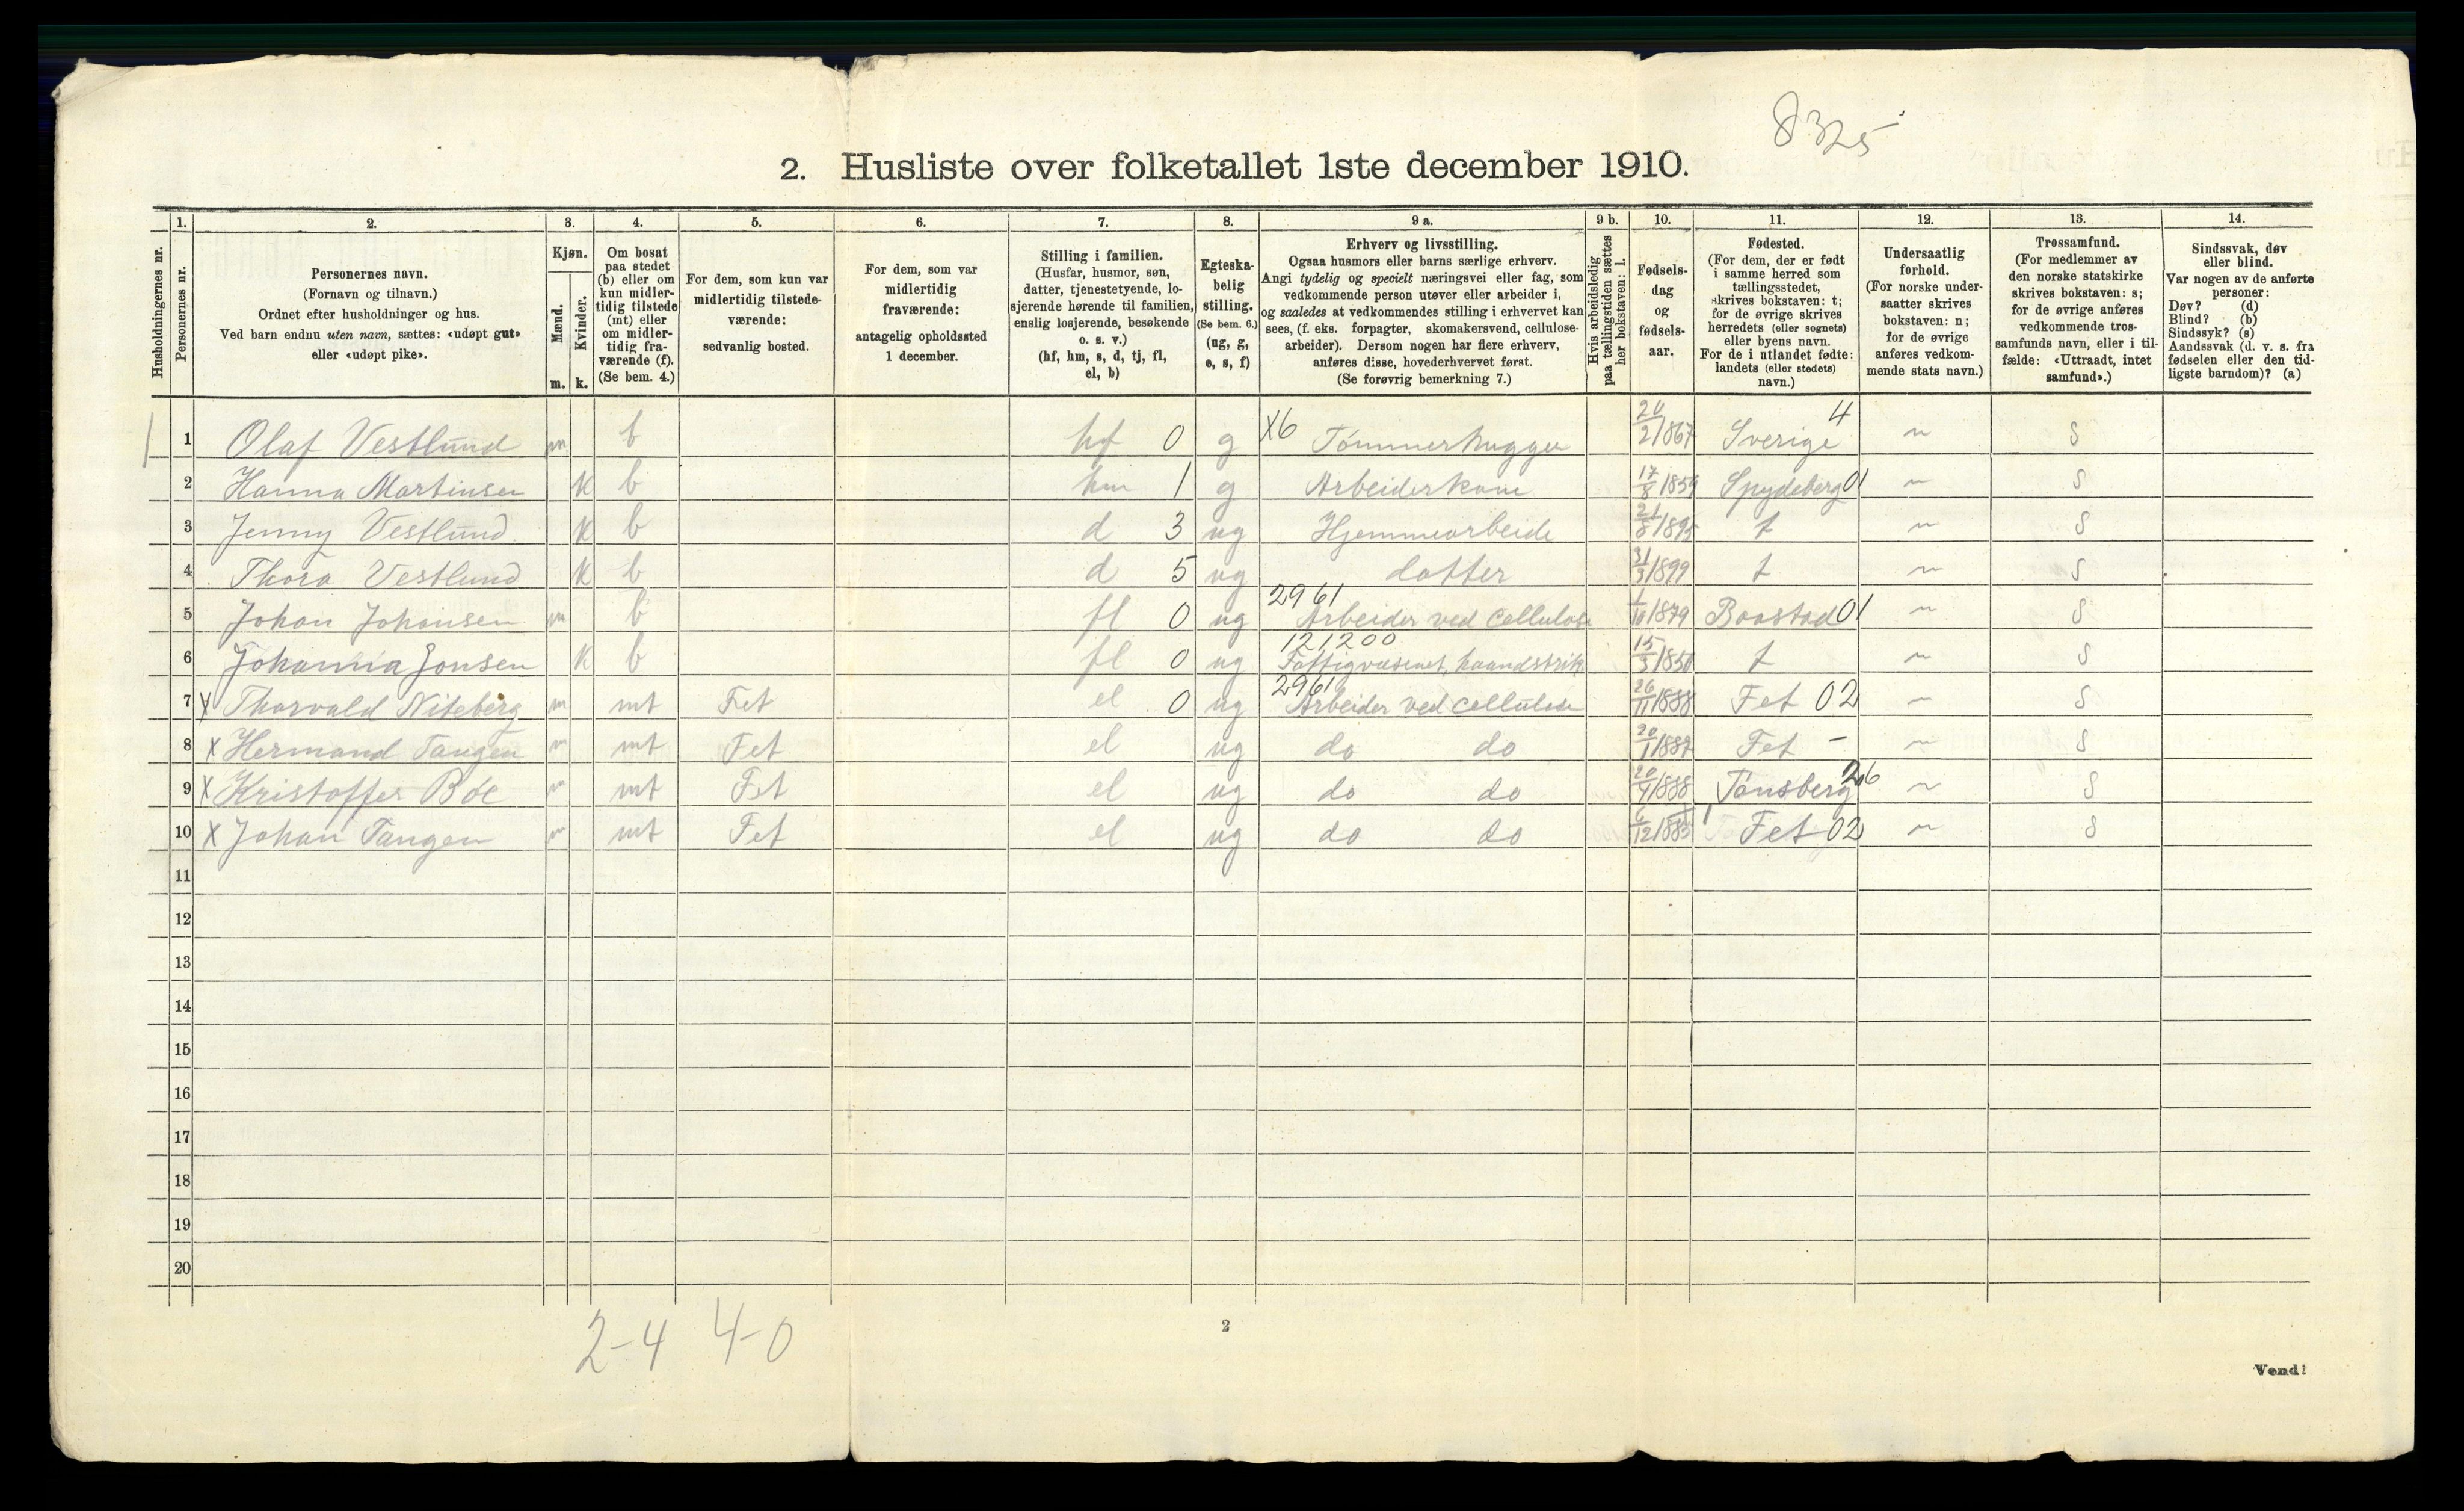 8325
2. Husliste over folketallet 1ste december 1910.
Husholdningernes nr.
1. Personernes nr.
2. Personernes navn.
(Fornavn og tilnavn.)
Ordnet efter husholdninger og hus.
Ved barn endnu uten navn, sættes: «udøpt gut»
eller «udøpt pike».
3. Kjøn.
Mænd. m.
Kvinder. k.
4. Om bosat
paa stedet
(b) eller om
kun midler-
tidig tilstede
(mt) eller
om midler-
tidig fra-
værende (f).
(Se bem. 4.)
5. For dem, som kun var
midlertidig tilstede-
værende:
sedvanlig bosted.
6. For dem, som var
midlertidig
fraværende:
antagelig opholdssted
1 december.
7. Stilling i familien.
(Husfar, husmor, søn,
datter, tjenestetyende, lo-
sjerende hørende til familien,
enslig losjerende, besøkende
o. s. v.)
(hf, hm, s, d, tj, fl,
el, b)
8. Egteska-
belig
stilling.
(Se bem. 6.)
(ug, g,
e, s, f)
9 a. Erhverv og livsstilling.
Ogsaa husmors eller barns særlige erhverv.
Angi tydelig og specielt næringsvei eller fag, som
vedkommende person utøver eller arbeider i,
og saaledes at vedkommendes stilling i erhvervet kan
sees, (f. eks. forpagter, skomakersvend, cellulose-
arbeider). Dersom nogen har flere erhverv,
anføres disse, hovederhvervet først.
(Se forøvrig bemerkning 7.)
9 b. Hvis arbeidsledig
paa tællingstiden sættes
her bokstaven: l.
10. Fødsels-
dag
og
fødsels-
aar.
11. Fødested.
(For dem, der er født
i samme herred som
tællingsstedet,
skrives bokstaven: t;
for de øvrige skrives
herredets (eller sognets)
eller byens navn.
For de i utlandet fødte:
landets (eller stedets)
navn.)
12. Undersaatlig
forhold.
(For norske under-
saatter skrives
bokstaven: n;
for de øvrige
anføres vedkom-
mende stats navn.)
13. Trossamfund.
(For medlemmer av
den norske statskirke
skrives bokstaven: s;
for de øvrige anføres
vedkommende tros-
samfunds navn, eller i til-
fælde: «Uttraadt, intet
samfund».)
14. Sindssvak, døv
eller blind.
Var nogen av de anførte
personer:
Døv? (d)
Blind? (b)
Sindssyk? (s)
Aandssvak (d. v. s. fra
fødselen eller den tid-
ligste barndom)? (a)
1 1 Olaf Vestlund m b hf 0 g X6 Tømmerhugger 20/2 1867 Sverige 4 n s
2 Hanna Martinsen k b hm 1 g Arbeiderkone 17/8 1859 Spydeberg 01 n s
3 Jenny Vestlund k b d 3 ug Hjemmearbeide 21/8 1895 t n s
4 Thora Vestlund k b d 5 ug datter 31/3 1899 t n s
5 Johan Johansen m b fl 0 ug 2961 Arbeider ved Cellulose 1/10 1879 Baastad 01 n s
6 Johanna Jonsen k b fl 0 ug 121200 Fattigvæsenet, haandstrik. 15/3 1850 t n s
7 X Thorvald Niteberg m mt Fet el 0 ug 2961 Arbeider ved cellulose 26/11 1888 Fet 02 n s
8 X Hermand Tangen m mt Fet el ug do do 20/1 1887 Fet – n s
9 X Kristoffer Boe m mt Fet el ug do do 20/4 1888 Tønsberg 26 n s
10 X Johan Tangen m mt Fet el ug do do 6/12 1885 Fet 02 n s
11
12
13
14
15
16
17
18
19
20
2-4 4-0
2
Vend!